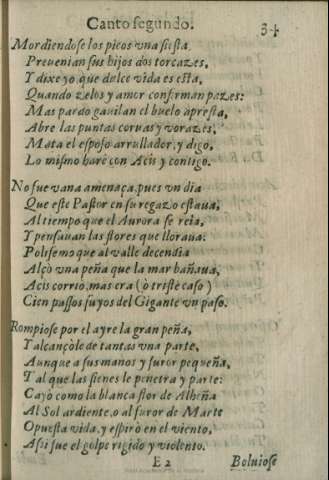 Canto segundo. 34
Mordiendose los picos vna siesta
Preuenian sus hijos dos torcazes,
Y dixe yo, que dulce vida es esta,
Quando zelos y amor confirman pazes:
Mas pardo gauilan el buelo apresta,
Abre las puntas coruas y vorazes,
Mata el esposo arrullador, y digo,
Lo mismo harè con Acis y contigo.
No fue vana amenaça, pues vn dia
Que este Pastor en su regazo estaua,
Al tiempo que el Aurora se reia,
Y pensauan las flores que lloraua:
Polifemo que al valle decendia
Alçò vna peña que la mar bañaua,
Acis corriò, mas era (ò triste caso)
Cien passos suyos del Gigante vn paso.
Rompiose por el ayre la gran peña,
Y alcançòle de tantas vna parte,
Aunque a sus manos y furor pequeña,
Tal que las sienes le penetra y parte:
Cayò como la blanca flor de Alheña
Al Sol ardiente, o al furor de Marte
Opuesta vida, y espirò en el viento,
Assi fue el golpe rigido y violento.
E 2 Boluiose